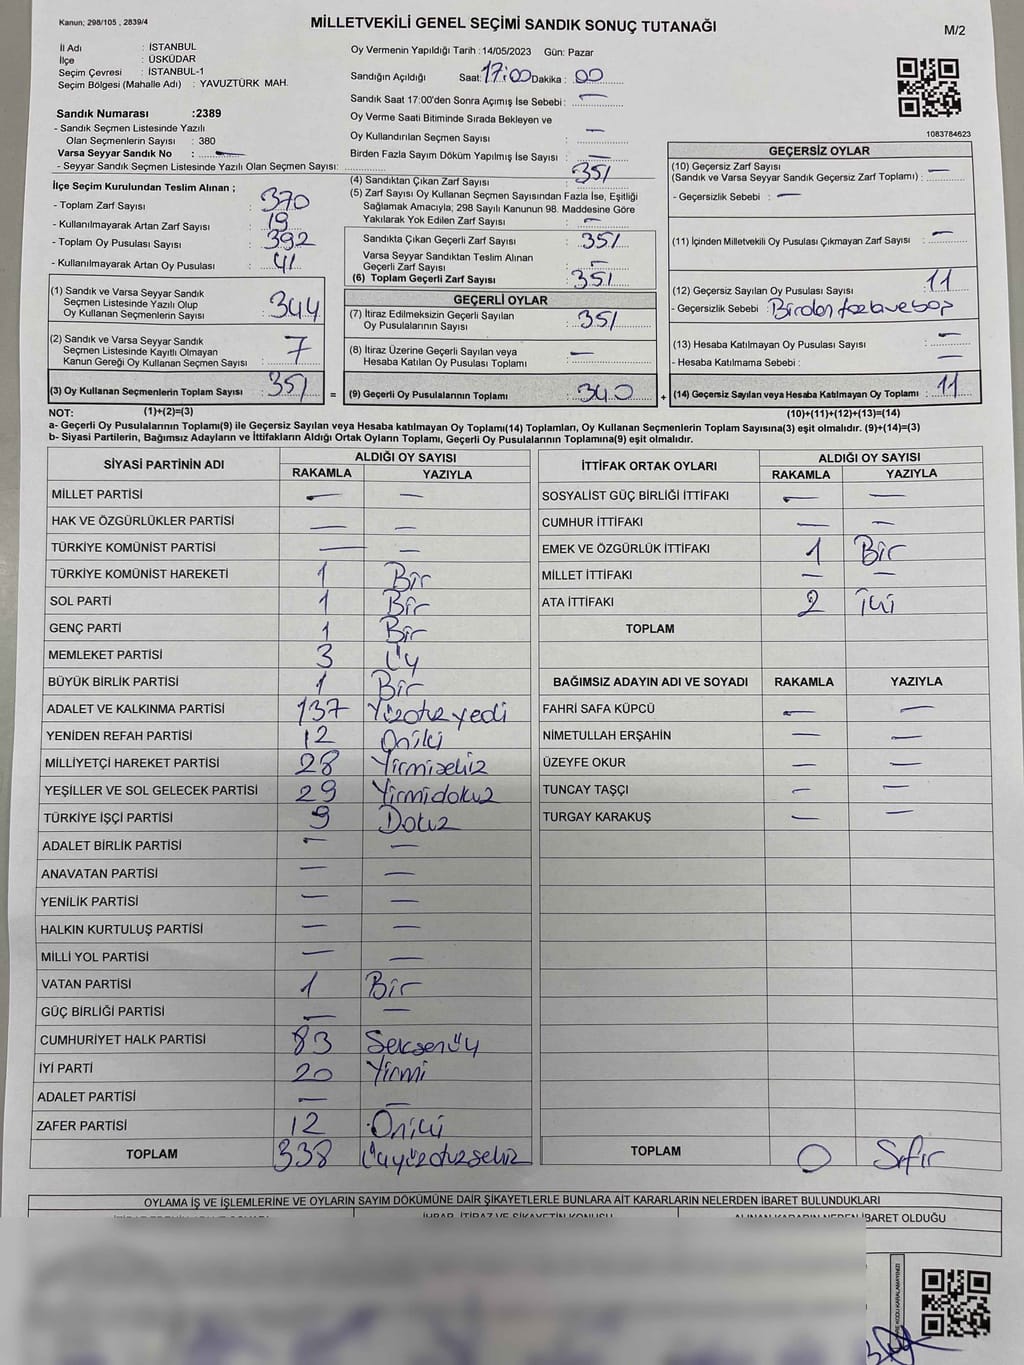 Kanun; 298/105 , 2839/4
MİLLETVEKİLİ GENEL SEÇİMİ SANDIK SONUÇ TUTANAĞI
M/2
İl Adı : İSTANBUL
İlçe : ÜSKÜDAR
Seçim Çevresi : İSTANBUL-1
Seçim Bölgesi (Mahalle Adı) : YAVUZTÜRK MAH.
Sandık Numarası :2389
- Sandık Seçmen Listesinde Yazılı
Olan Seçmenlerin Sayısı : 380
Varsa Seyyar Sandık No : —
- Seyyar Sandık Seçmen Listesinde Yazılı Olan Seçmen Sayısı:
İlçe Seçim Kurulundan Teslim Alınan ;
- Toplam Zarf Sayısı : 370
- Kullanılmayarak Artan Zarf Sayısı : 19
- Toplam Oy Pusulası Sayısı : 392
- Kullanılmayarak Artan Oy Pusulası : 41
(1) Sandık ve Varsa Seyyar Sandık
Seçmen Listesinde Yazılı Olup
Oy Kullanan Seçmenlerin Sayısı : 344
(2) Sandık ve Varsa Seyyar Sandık
Seçmen Listesinde Kayıtlı Olmayan
Kanun Gereği Oy Kullanan Seçmen Sayısı : 7
(3) Oy Kullanan Seçmenlerin Toplam Sayısı : 351
Oy Vermenin Yapıldığı Tarih : 14/05/2023 Gün: Pazar
Sandığın Açıldığı Saat: 17:00 Dakika : 00
Sandık Saat 17:00'den Sonra Açımış İse Sebebi : —
Oy Verme Saati Bitiminde Sırada Bekleyen ve
Oy Kullandırılan Seçmen Sayısı : —
Birden Fazla Sayım Döküm Yapılmış İse Sayısı : —
(4) Sandıktan Çıkan Zarf Sayısı : 351
(5) Zarf Sayısı Oy Kullanan Seçmen Sayısından Fazla İse, Eşitliği
Sağlamak Amacıyla; 298 Sayılı Kanunun 98. Maddesine Göre
Yakılarak Yok Edilen Zarf Sayısı : —
Sandıkta Çıkan Geçerli Zarf Sayısı : 351
Varsa Seyyar Sandıktan Teslim Alınan
Geçerli Zarf Sayısı : —
(6) Toplam Geçerli Zarf Sayısı : 351
GEÇERLİ OYLAR
(7) İtiraz Edilmeksizin Geçerli Sayılan
Oy Pusulalarının Sayısı : 351
(8) İtiraz Üzerine Geçerli Sayılan veya
Hesaba Katılan Oy Pusulası Toplamı : —
= (9) Geçerli Oy Pusulalarının Toplamı : 340
1083784623
GEÇERSİZ OYLAR
(10) Geçersiz Zarf Sayısı
(Sandık ve Varsa Seyyar Sandık Geçersiz Zarf Toplamı) : —
- Geçersizlik Sebebi : —
(11) İçinden Milletvekili Oy Pusulası Çıkmayan Zarf Sayısı : —
(12) Geçersiz Sayılan Oy Pusulası Sayısı : 11
- Geçersizlik Sebebi : Birden fazla ve boş
(13) Hesaba Katılmayan Oy Pusulası Sayısı : —
- Hesaba Katılmama Sebebi : —
+ (14) Geçersiz Sayılan veya Hesaba Katılmayan Oy Toplamı : 11
NOT: (1)+(2)=(3) (10)+(11)+(12)+(13)=(14)
a- Geçerli Oy Pusulalarının Toplamı(9) ile Geçersiz Sayılan veya Hesaba katılmayan Oy Toplamı(14) Toplamları, Oy Kullanan Seçmenlerin Toplam Sayısına(3) eşit olmalıdır. (9)+(14)=(3)
b- Siyasi Partilerin, Bağımsız Adayların ve İttifakların Aldığı Ortak Oyların Toplamı, Geçerli Oy Pusulalarının Toplamına(9) eşit olmalıdır.
SİYASİ PARTİNİN ADI ALDIĞI OY SAYISI
RAKAMLA YAZIYLA
MİLLET PARTİSİ — —
HAK VE ÖZGÜRLÜKLER PARTİSİ — —
TÜRKİYE KOMÜNİST PARTİSİ — —
TÜRKİYE KOMÜNİST HAREKETİ 1 Bir
SOL PARTİ 1 Bir
GENÇ PARTİ 1 Bir
MEMLEKET PARTİSİ 3 Üç
BÜYÜK BİRLİK PARTİSİ 1 Bir
ADALET VE KALKINMA PARTİSİ 137 Yüzotuzyedi
YENİDEN REFAH PARTİSİ 12 Oniki
MİLLİYETÇİ HAREKET PARTİSİ 28 Yirmisekiz
YEŞİLLER VE SOL GELECEK PARTİSİ 29 Yirmidokuz
TÜRKİYE İŞÇİ PARTİSİ 9 Dokuz
ADALET BİRLİK PARTİSİ — —
ANAVATAN PARTİSİ — —
YENİLİK PARTİSİ — —
HALKIN KURTULUŞ PARTİSİ — —
MİLLİ YOL PARTİSİ — —
VATAN PARTİSİ 1 Bir
GÜÇ BİRLİĞİ PARTİSİ — —
CUMHURİYET HALK PARTİSİ 83 Seksenüç
İYİ PARTİ 20 Yirmi
ADALET PARTİSİ — —
ZAFER PARTİSİ 12 Oniki
TOPLAM 338 Üçyüzotuzsekiz
İTTİFAK ORTAK OYLARI ALDIĞI OY SAYISI
RAKAMLA YAZIYLA
SOSYALİST GÜÇ BİRLİĞİ İTTİFAKI — —
CUMHUR İTTİFAKI — —
EMEK VE ÖZGÜRLÜK İTTİFAKI 1 Bir
MİLLET İTTİFAKI — —
ATA İTTİFAKI 2 İki
TOPLAM
BAĞIMSIZ ADAYIN ADI VE SOYADI RAKAMLA YAZIYLA
FAHRİ SAFA KÜPCÜ — —
NİMETULLAH ERŞAHİN — —
ÜZEYFE OKUR — —
TUNCAY TAŞÇI — —
TURGAY KARAKUŞ — —
TOPLAM 0 Sıfır
OYLAMA İŞ VE İŞLEMLERİNE VE OYLARIN SAYIM DÖKÜMÜNE DAİR ŞİKAYETLERLE BUNLARA AİT KARARLARIN NELERDEN İBARET BULUNDUKLARI
İHBAR, İTİRAZ VE ŞİKAYETİN KONUSU ALINAN KARARIN NEDEN İBARET OLDUĞU